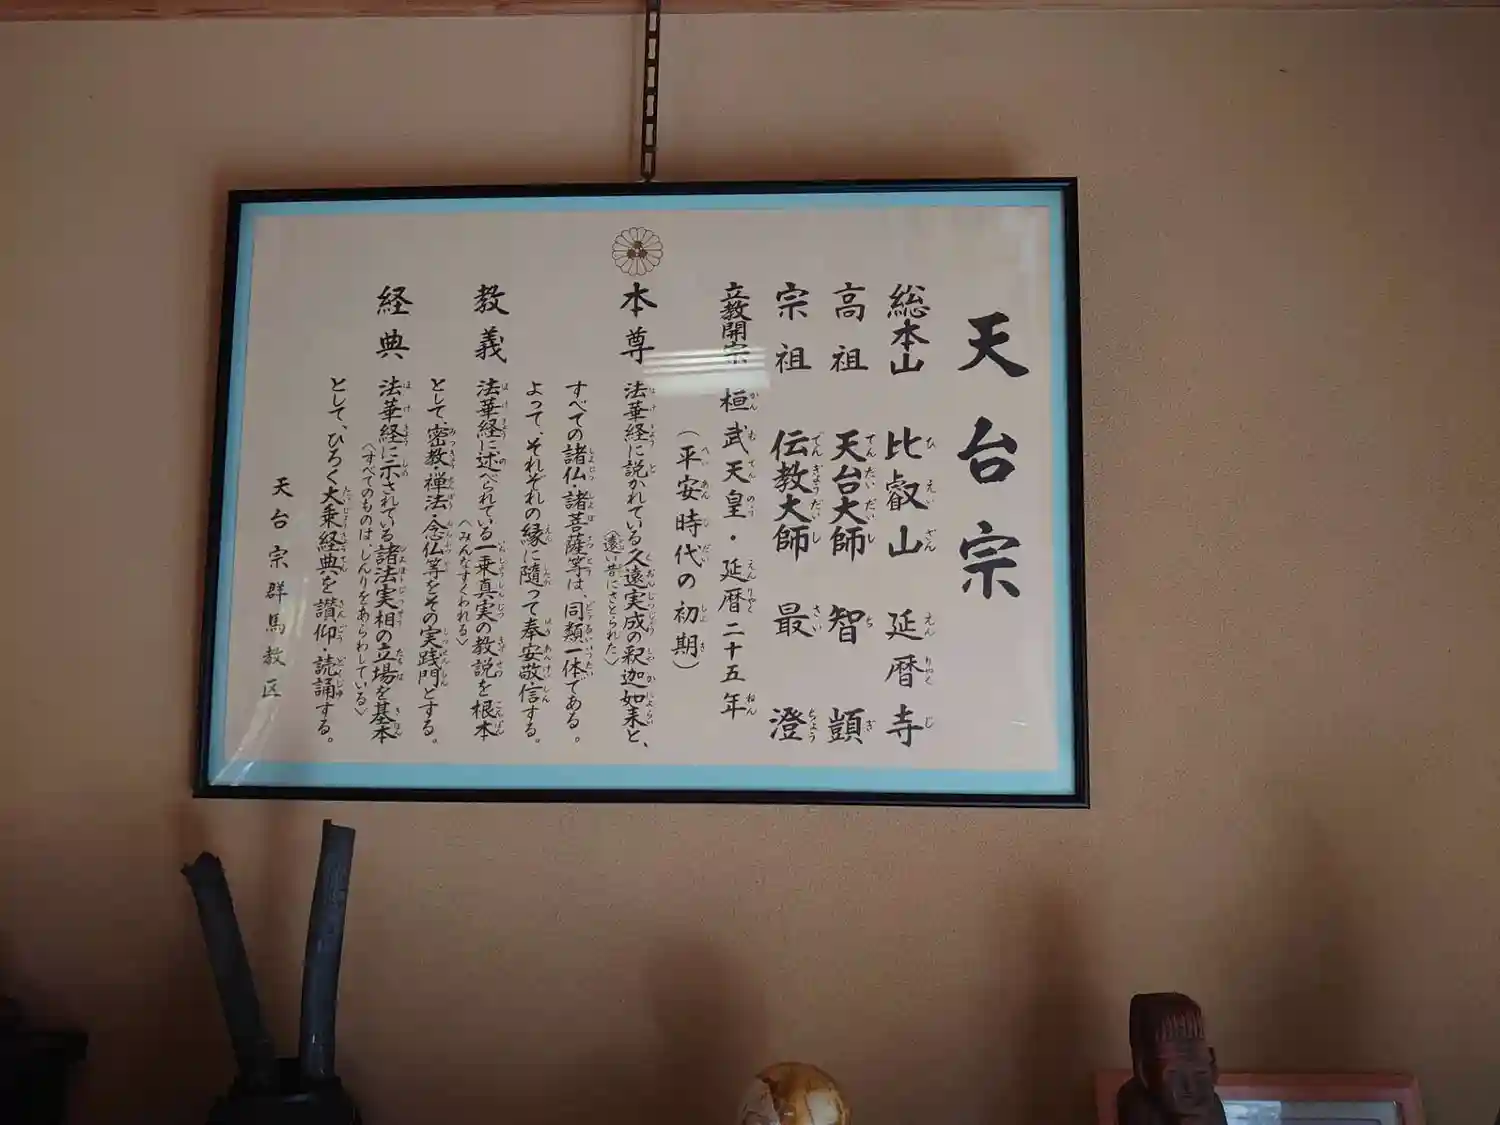 天台宗
総本山 比叡山 延暦寺
高祖 天台大師 智顗
宗祖 伝教大師 最澄
立教開宗 桓武天皇・延暦二十五年
(平安時代の初期)
本尊 法華経に説かれている久遠実成の釈迦如来と、
〈遠い昔にさとられた〉
すべての諸仏・諸菩薩等は、同類一体である。
よって、それぞれの縁に随って奉安敬信する。
教義 法華経に述べられている一乗真実の教説を根本
〈みんなすくわれる〉
として、密教・禅法・念仏等をその実践門とする。
経典 法華経に示されている諸法実相の立場を基本
〈すべてのものは、しんりをあらわしている〉
として、ひろく大乗経典を讃仰・読誦する。
天台宗群馬教区